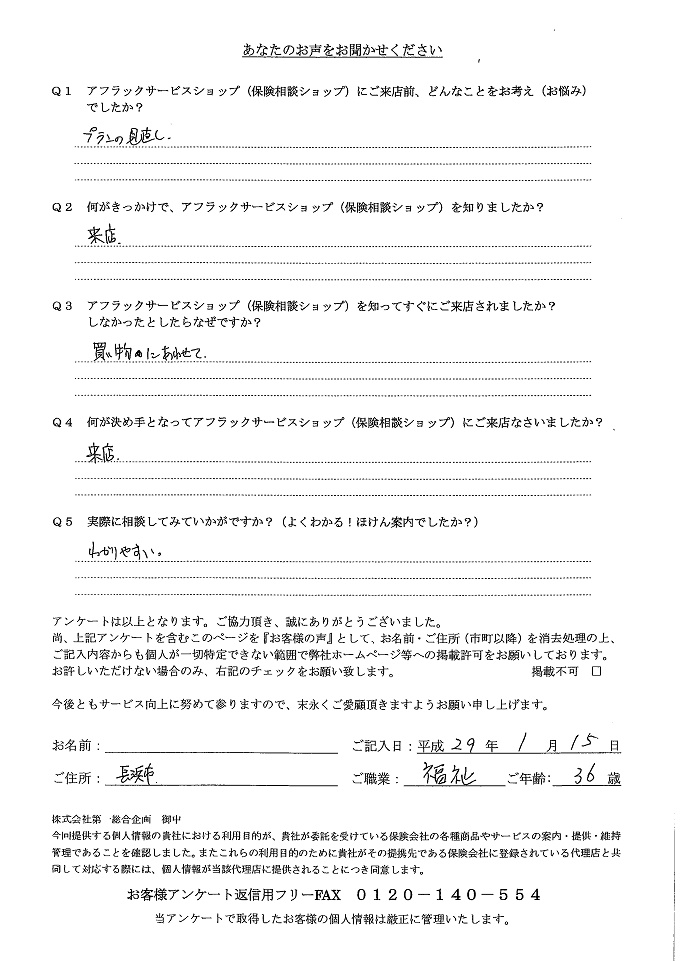 あなたのお声をお聞かせください
Q1 アフラックサービスショップ（保険相談ショップ）にご来店前、どんなことをお考え（お悩み）
でしたか？
プランの見直し.
Q2 何がきっかけで、アフラックサービスショップ（保険相談ショップ）を知りましたか？
来店.
Q3 アフラックサービスショップ（保険相談ショップ）を知ってすぐにご来店されましたか？
しなかったとしたらなぜですか？
買い物にあわせて.
Q4 何が決め手となってアフラックサービスショップ（保険相談ショップ）にご来店なさいましたか？
来店.
Q5 実際に相談してみていかがですか？（よくわかる！ほけん案内でしたか？）
わかりやすい。
アンケートは以上となります。ご協力頂き、誠にありがとうございました。
尚、上記アンケートを含むこのページを『お客様の声』として、お名前・ご住所（市町以降）を消去処理の上、
ご記入内容からも個人が一切特定できない範囲で弊社ホームページ等への掲載許可をお願いしております。
お許しいただけない場合のみ、右記のチェックをお願い致します。 掲載不可 □
今後ともサービス向上に努めて参りますので、末永くご愛顧頂きますようお願い申し上げます。
お名前： ご記入日：平成 29 年 1 月 15 日
ご住所： 長浜市. ご職業： 福祉 ご年齢： 36 歳
株式会社第一総合企画 御中
今回提供する個人情報の貴社における利用目的が、貴社が委託を受けている保険会社の各種商品やサービスの案内・提供・維持
管理であることを確認しました。またこれらの利用目的のために貴社がその提携先である保険会社に登録されている代理店と共
同して対応する際には、個人情報が当該代理店に提供されることにつき同意します。
お客様アンケート返信用フリーFAX 0120－140－554
当アンケートで取得したお客様の個人情報は厳正に管理いたします。